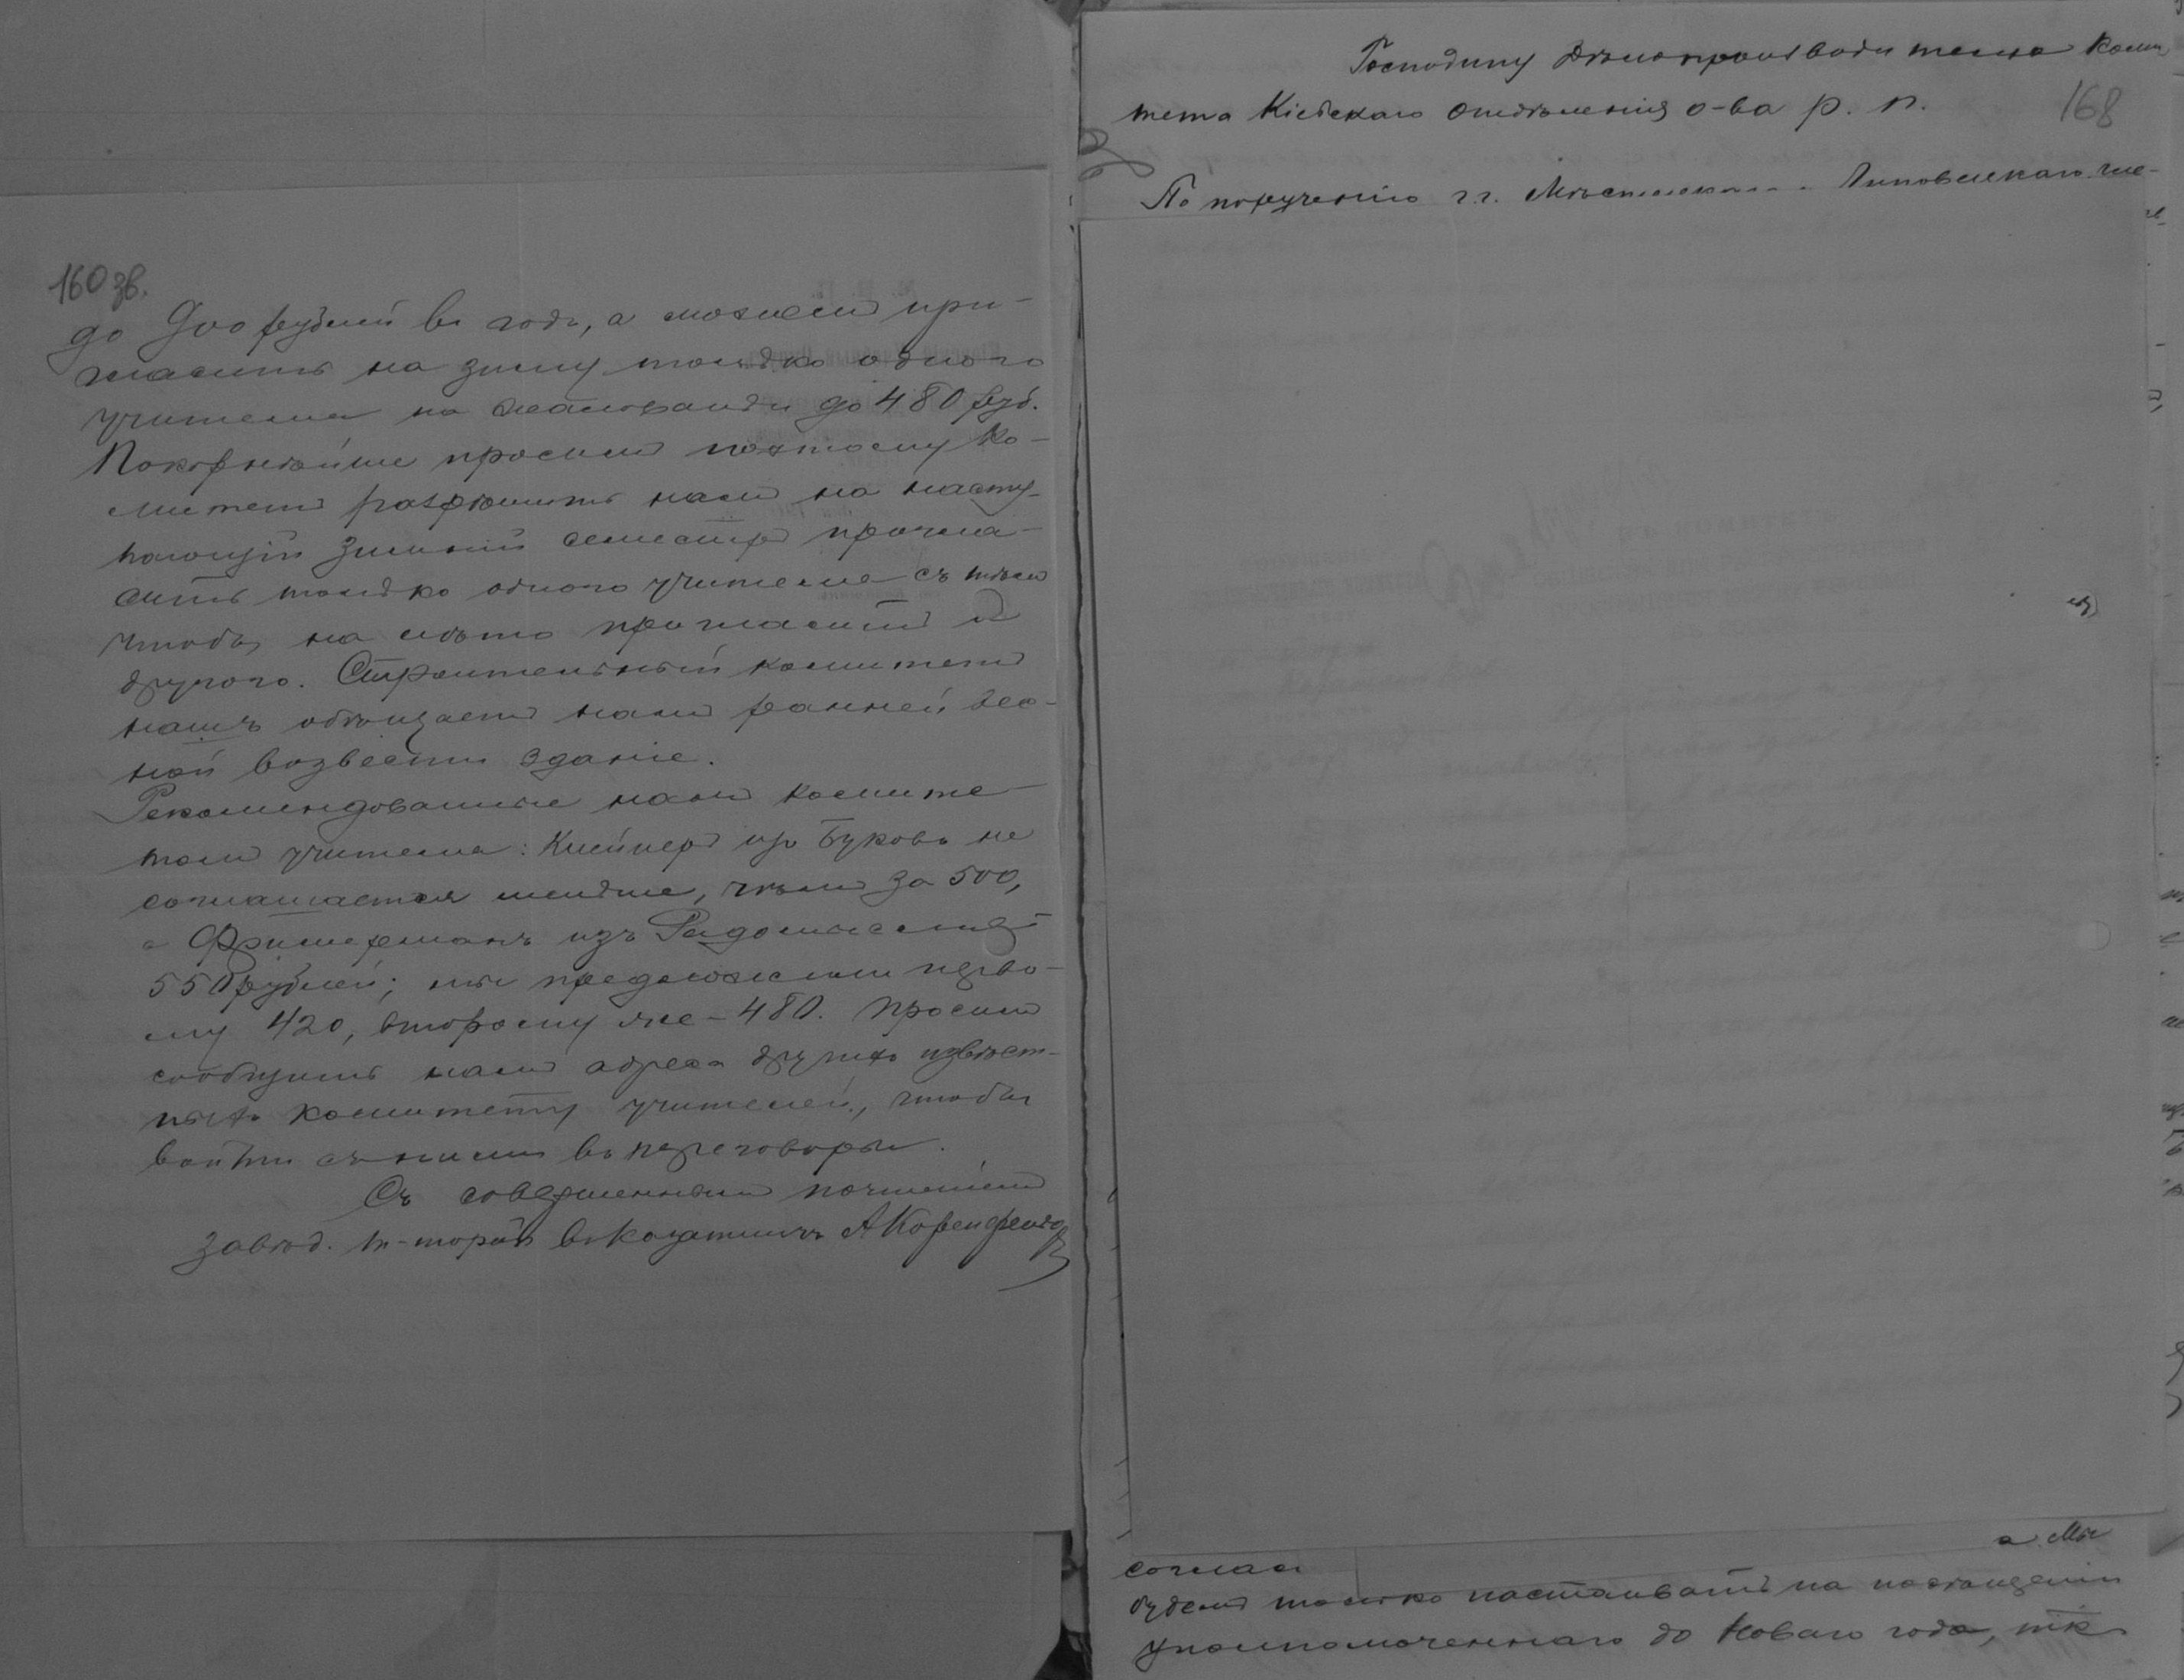 160 зв.
до 900 рублей въ годъ, а можемъ при-
гласить на зиму только одного
учителя на жалованьи до 480 руб.
Покорнѣйше просимъ поэтому Ко-
митетъ разрѣшить намъ на насту-
пающій зимній семестръ пригла-
сить только одного учителя съ тѣмъ
чтобы на лѣто пригласить и
другого. Строительный комитетъ
нашъ обѣщаетъ намъ ранней вес-
ной возвести зданіе.
Рекомендованные намъ комите-
томъ учителя: Клейнеръ изъ Букова не
соглашается меньше, чѣмъ за 500,
а изъ Радомысля
550 рублей; мы предложили перво-
му 420, второму же - 480. Просимъ
сообщить намъ адреса другихъ извѣст-
ныхъ комитету учителей, чтобы
войти съ ними въ переговоры.
Съ совершеннымъ почтеніемъ
Завѣд. т-торой въ Козатинѣ А Коренфельдъ
Господину Дѣлопроизводителю Коми
тета Кіевскаго Отдѣленія о-ва р. п.
168
По порученію г.г. Липовецкаго
а Мы
соглас
будемъ только настаивать на посѣщеніи
уполномоченнаго до Новаго года, тк